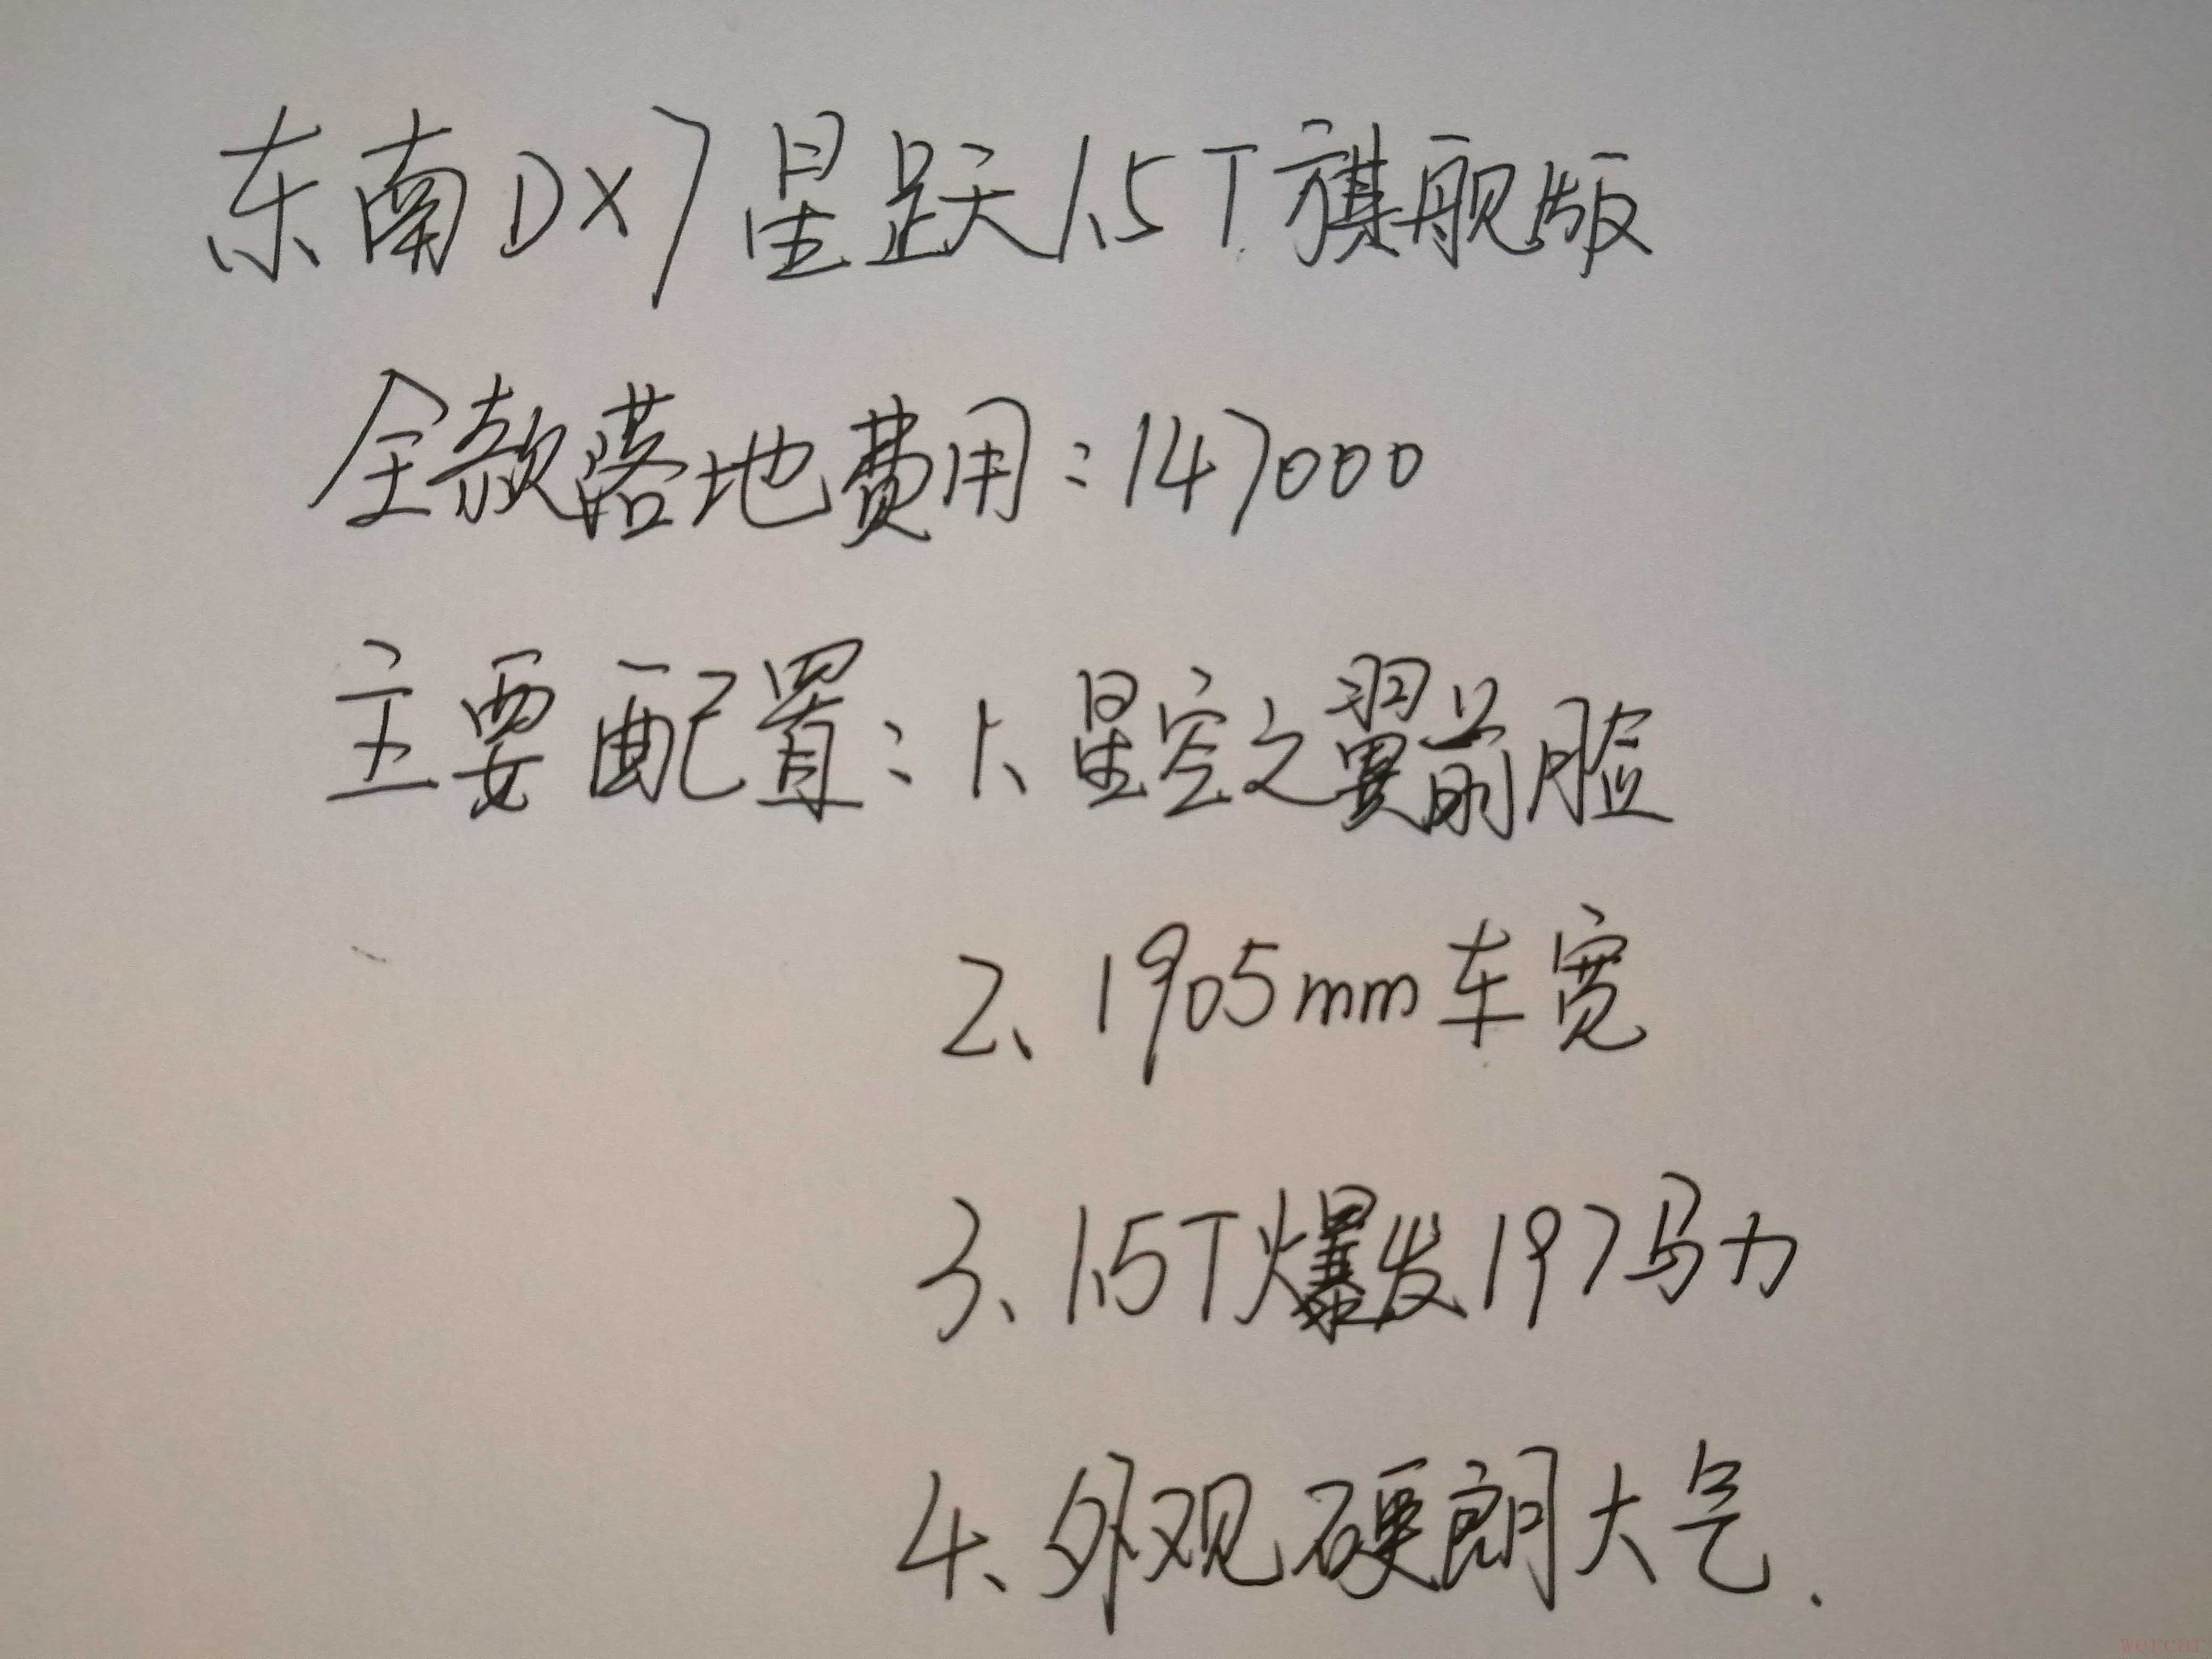 东南DX7星跃1.5T旗舰版
全款落地费用:147000
主要配置:1、星空之翼前脸
2、1905mm车宽
3、1.5T爆发197马力
4、外观硬朗大气.